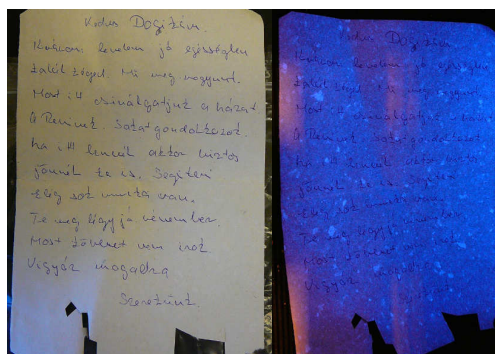 Kedves Dogizim.
Kivánom levelem jó egésségben
talál téged. Mi meg vagyunk.
Most itt csinálgatjuk a házat
A Reninek. Sokat gondolkozok
ha itt lennél akkor biztos
jönnél te is. Segiteni
elég sok munka van.
Te meg légy jó
Most többet nem irok
Vigyáz magadra
Szeretünk
Dogizim.
levelem jó egésségben
talál téged. Mi meg vagyunk.
Most itt csinálgatjuk a házat
A Reninek. Sokat gondolkozok
ha itt lennél akkor biztos
jönnél te is. Segiteni
elég sok munka van.
Te meg légy jó
Most többet nem irok
Vigyáz magadra